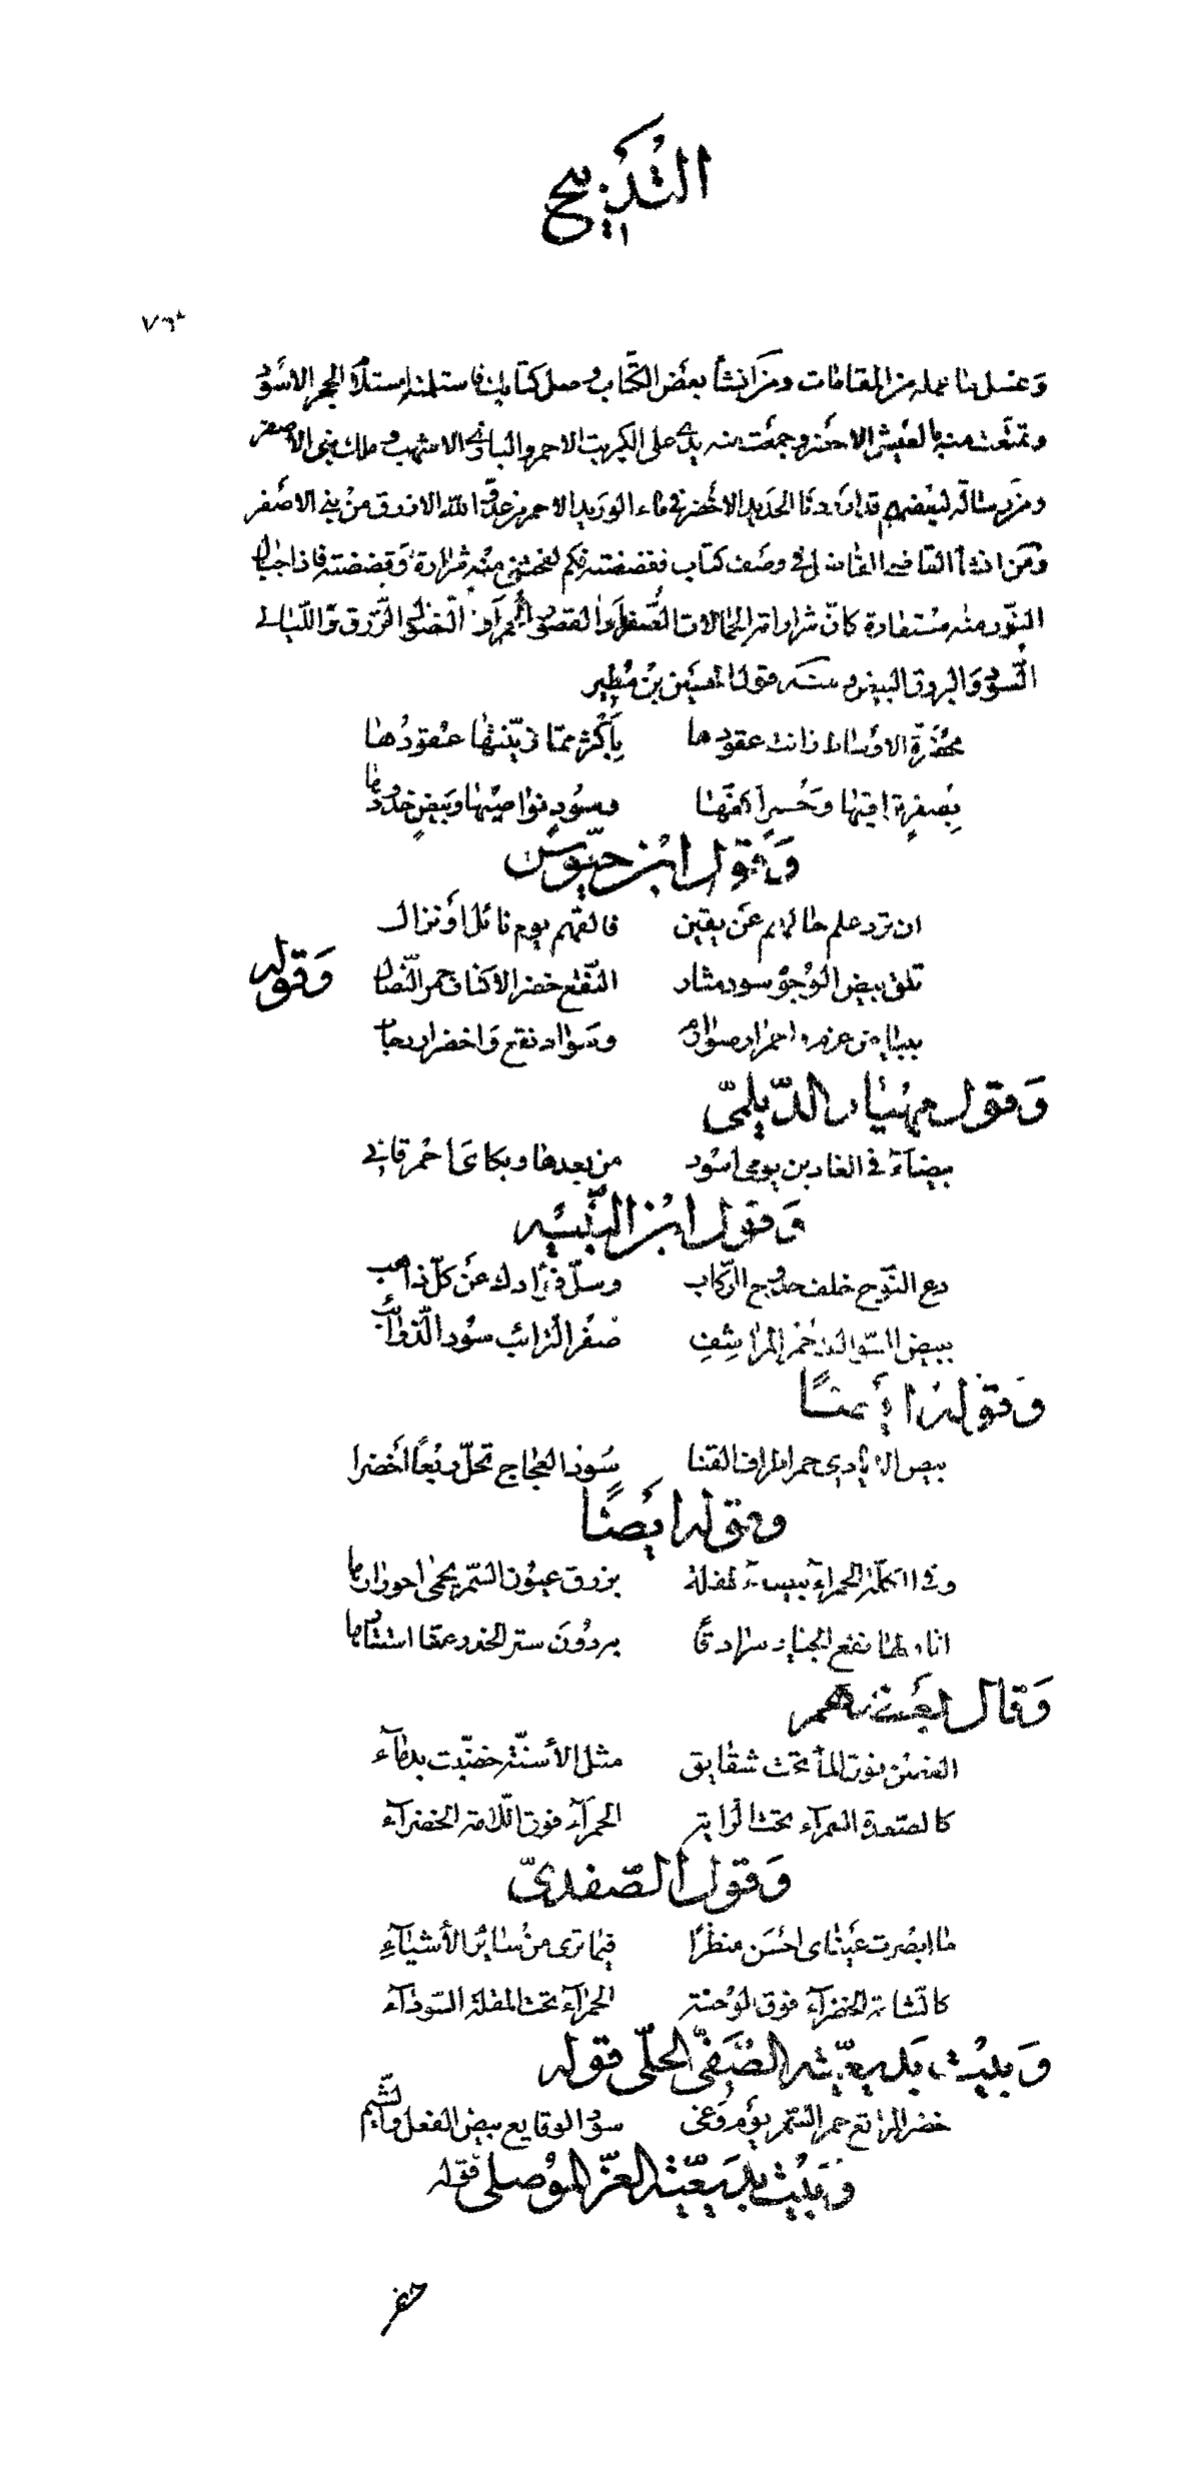 التدبيج
٧٦٠
ومن انشأ بعض الكتاب وصل كتابك فاستلمته استلام الحجر الاسود
وتمتعت منه بالعيش الاخضر وجمعت منه يدي على الكبريت الاحمر والبازي الاشهب وملك بني الاصفر
ومن رسالة لبعضهم قد اوردنا الحديد الاخضر في ماء الوريد الاحمر من عدو الله الازرق من بني الاصفر
ومن انشأ القاضي الفاضل في وصف كتاب ففضضته فكم لفحتني منه شرارة وقبضته فاذا جبال
النور منه مستعارة كان شراراته الجمالات الصفر او القصور الحمر او الزرق والليالي
السود والبروق البيض ومنه قول الحسين بن مطير
مخصرة الاوساط زانت عقودها بأكثر مما زينتها عقودها
بصفرة تراقيها وحمر اكفها وسود نواصيها وبيض خدودها
وقول ابن حيوس
ان ترد علم حالهم عن يقين فالقهم يوم نائل او نزال
تلق بيض الوجوه سود مثار النقع خضر الاكناف حمر النصال
وقوله
ببياض عرض واحمرار صوارم وسواد نقع واخضرار رحاب
وقول مهيار الديلمي
بيضاء في الغادين يومي اسود من بعدها وبكاي احمر قاني
وقول ابن النبيه
دع النوح خلف حدوج الركاب وسل فؤادك عن كل ذاهب
ببيض السوالف حمر المراشف صفر الترائب سود الذوائب
وقوله ايضا
بيض الايادي حمر اطراف القنا سود العجاج تحل ربعا اخضرا
وقوله ايضا
وفي الكلة الحمراء بيضاء طفلة بزرق عيون السمر يحمى احورارها
اثار لها نقع الجياد سرادقا بردون ستر الخدر عنها استتارها
وقال بعضهم
الغصن فوق الماء تحت شقايق مثل الأسنة خضبت بدماء
كالصعدة السمراء تحت الراية الحمراء فوق اللامة الخضراء
وقول الصفدي
ما ابصرت عيناي احسن منظرا فيما ترى من سائر الأشياء
كالشامة الخضراء فوق الوجنة الحمراء تحت المقلة السوداء
وبيت بديعية الصفي الحلي قوله
خضر المرابع حمر السمر يوم وغى سود الوقايع بيض الفعل والشيم
وبيت بديعية العز الموصلي قوله